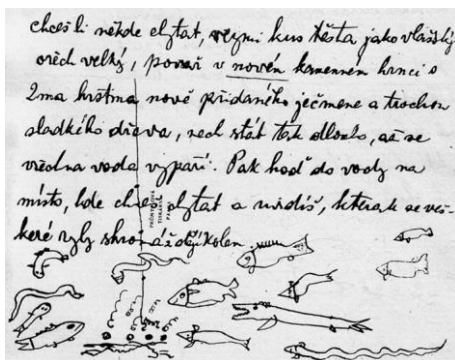 chceš li někde chytat, vezmi kus těsta jako vlašský
ořech velký, povař v novém kamenném hrnci s
2ma hrstma nově přidaného ječmene a trochou
sladkého dřeva, nech stát tak dlouho, až se
všechna voda vypaří. Pak hoď do vody na
místo, kde chceš chytat a uvidíš, kterak se veš-
keré ryby shromáždějí kolem.